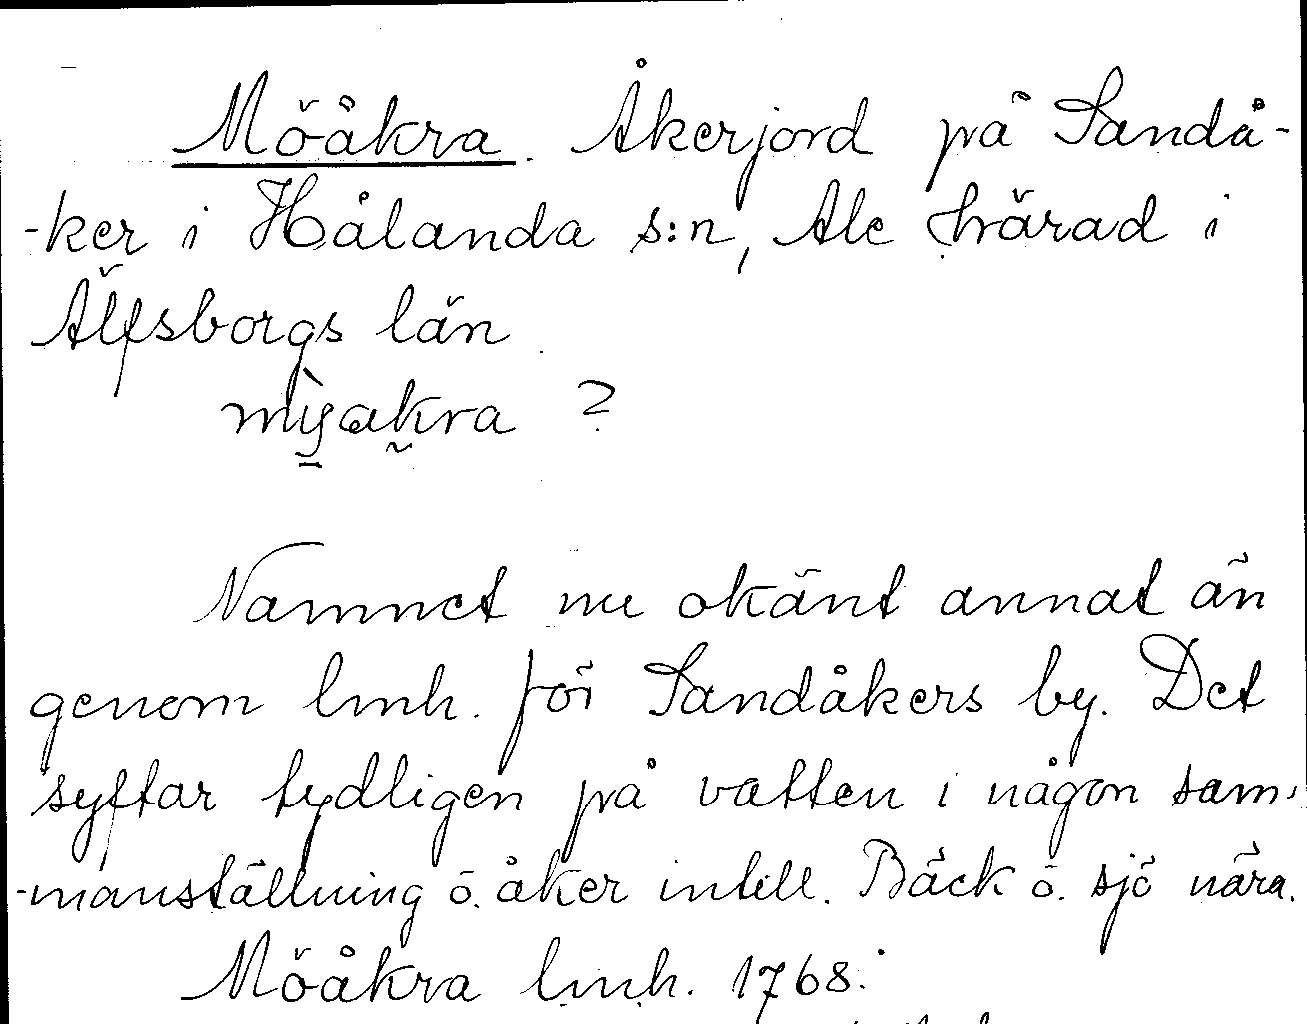 Möåkra. Åkerjord på Sandå-
-ker i Hålanda s:n, Ale härad i
Älfsborgs län
? 
Namnet nu okänt annat än
genom lmh. för Sandåkers by. Det
syftar tydligen på vatten i någon sam-
-manställning o. åker intill. Bäck o. sjö nära.
Möåkra lmh. 1768.